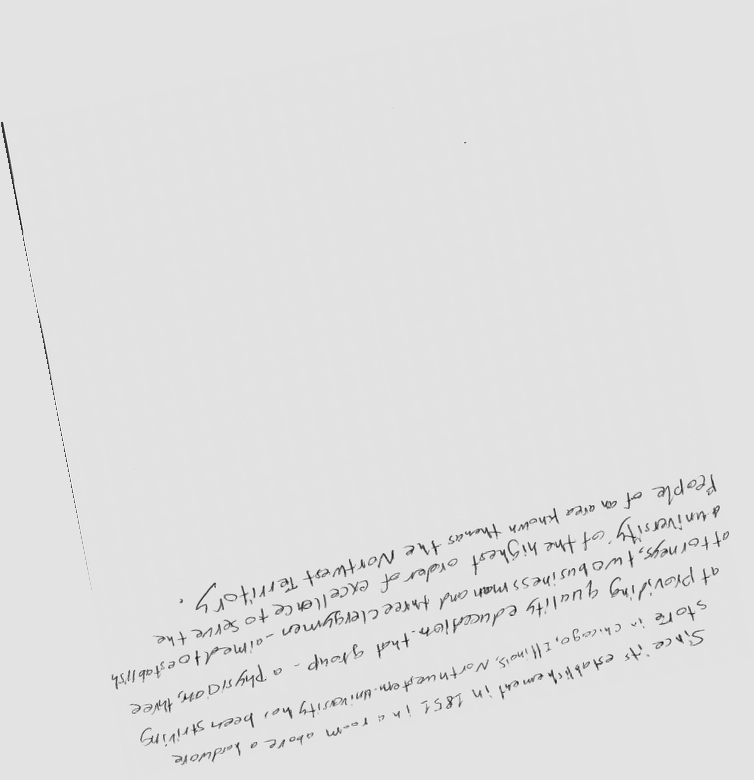 Since its establishement in 1851 in a room above a hardware
store in chicago, Illinois, Northwestern university has been striving
at providing quality education. that group - a physician, three
attorneys, two businessman and three clergymen - aimed to establish
a university "of the highest order of excellence to serve the
People of an area known then as the Northwest Territory.